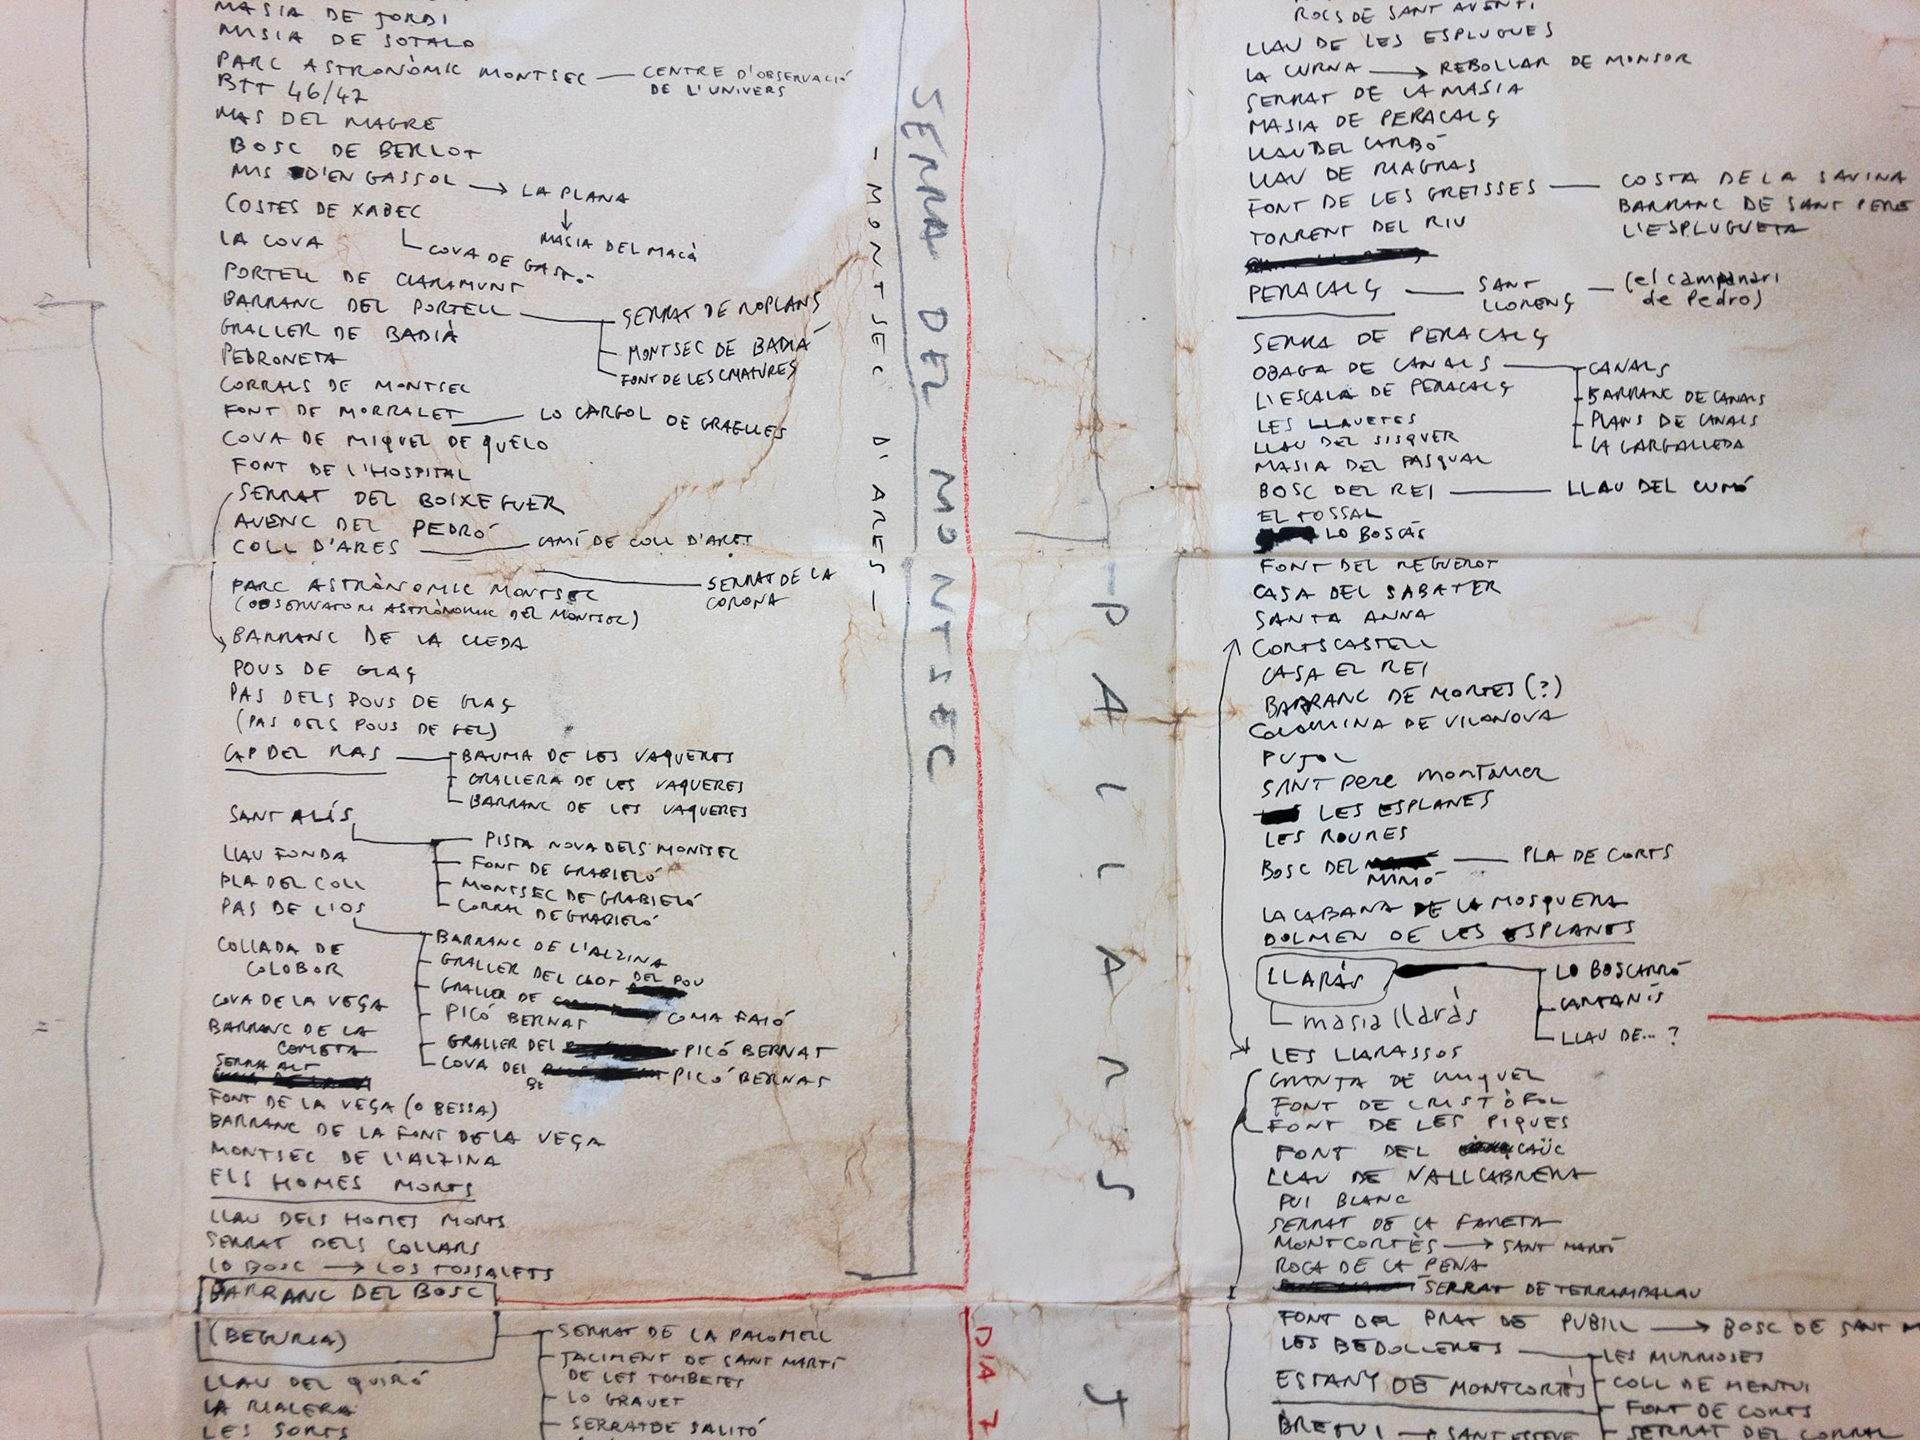 MASIA DE JORDI
MASIA DE SOTALO
PARC ASTRONÒMIC MONTSEC — CENTRE D'OBSERVACIÓ
DE L'UNIVERS
BTT 46/47
MAS DEL MAGRE
BOSC DE BERLOT
MAS D'EN GASSOL → LA PLANA
↓
MASIA DEL MACÀ
COSTES DE XABEC
COVA DE
LA COVA
PORTELL DE CLARAMUNT
BARRANC DEL PORTELL — SERRAT DE NOPLANS
MONTSEC DE BADIÀ
FONT DE LES
GRALLER DE BADIÀ
PEDRONETA
CORRALS DE MONTSEC
FONT DE MORRALET — LO CARGOL DE GRAELLES
COVA DE MIQUEL DE QUELO
FONT DE L'HOSPITAL
SERRAT DEL BOIXEGUER
AVENC DEL PEDRÓ
COLL D'ARES — CAMÍ DE COLL D'ARES
SERRAT DE LA
CORONA
PARC ASTRÒNOMIC MONTSEC
(OBSERVATORI ASTRÒNOMIC DEL MONTSEC)
BARRANC DE LA CLEDA
POUS DE GLAÇ
PAS DELS POUS DE GLAÇ
(PAS DELS POUS DE GEL)
CAP DEL RAS — BAUMA DE LES VAQUERES
GRALLERA DE LES VAQUERES
BARRANC DE LES VAQUERES
SANT ALÍS
PISTA NOVA DELS MONTSEC
FONT DE GRABIELÓ
MONTSEC DE GRABIELÓ
CORRAL DE GRABIELÓ
LLAU FONDA
PLA DEL COLL
PAS DE L'OS
BARRANC DE L'ALZINA
GRALLER DEL CLOT DEL POU
GRALLER DE COMA FAIÓ
PICÓ BERNAT
GRALLER DEL PICÓ BERNAT
COVA DEL PICÓ BERNAT
DE
COLLADA DE
COLOBOR
COVA DE LA VEGA
BARRANC DE LA
COMETA
SERRA ALT
FONT DE LA VEGA (O BESSA)
BARRANC DE LA FONT DE LA VEGA
MONTSEC DE L'ALZINA
ELS HOMES MORTS
LLAU DELS HOMES MORTS
SERRAT DELS COLLARS
LO BOSC → LOS TOSSALETS
BARRANC DEL BOSC
(BEGURIA)
SERRAT DE LA PALOMELL
JACIMENT DE SANT MARTÍ
DE LES TOMBETES
LO GRAVET
SERRAT DE SALITÓ
LLAU DEL QUIRÓ
LA RIALERA
LES SORTS
- MONTSEC D'ARES -
SERRA DEL MONTSEC
DIA 7
- PALLARS J
ROCS DE SANT AVENTÍ
LLAU DE LES ESPLUGUES
LA CURNA → REBOLLAR DE MONSOR
SERRAT DE LA MASIA
MASIA DE PERACALÇ
LLAU DEL CARBÓ
LLAU DE MAGRAS
FONT DE LES GREISSES — COSTA DE LA SAVINA
BARRANC DE SANT PERE
L'ESPLUGUETA
TORRENT DEL RIU
PERACALÇ — SANT
LLORENÇ — (el campanari
de Pedro)
SERRA DE PERACALÇ
OBAGA DE CANALS — CANALS
BARRANC DE CANALS
PLANS DE CANALS
LA GARGALLEDA
L'ESCALA DE PERACALÇ
LES LLAVETES
LLAU DEL SISQUER
MASIA DEL PASQUAL
BOSC DEL REI — LLAU DEL CUMÓ
EL TOSSAL
LO BOSCÀS
FONT DEL REGUEROT
CASA DEL SABATER
SANTA ANNA
CORTSCASTELL
CASA EL REI
BARRANC DE MORTES (?)
COLOMINA DE VILANOVA
PUJOL
SANT PERE MONTANER
LES ESPLANES
LES ROURES
BOSC DEL MIMÓ — PLA DE CORTS
LA CABANA DE LA MOSQUERA
DOLMEN DE LES ESPLANES
LLARÀS — LO BOSCARRÓ
CANTANÍS
LLAU DE... ?
masia llaràs
LES LLARASSOS
GRANJA DE MIQUEL
FONT DE CRISTÒFOL
FONT DE LES PIQUES
FONT DEL CAÜC
LLAU DE VALLCABRERA
PUI BLANC
SERRAT DE LA FARETA
MONTCORTÈS → SANT MARTÍ
ROCA DE LA PENA
SERRAT DE TERRAMPALAU
FONT DEL PRAT DE PUBILL → BOSC DE SANT M
LES BEDOLLERES — LES MURMOSES
COLL DE MENTUI
FONT DE CORTS
SERRAT DEL CORRAL
ESTANY DE MONTCORTÈS
BRETUI → SANT ESTEVE